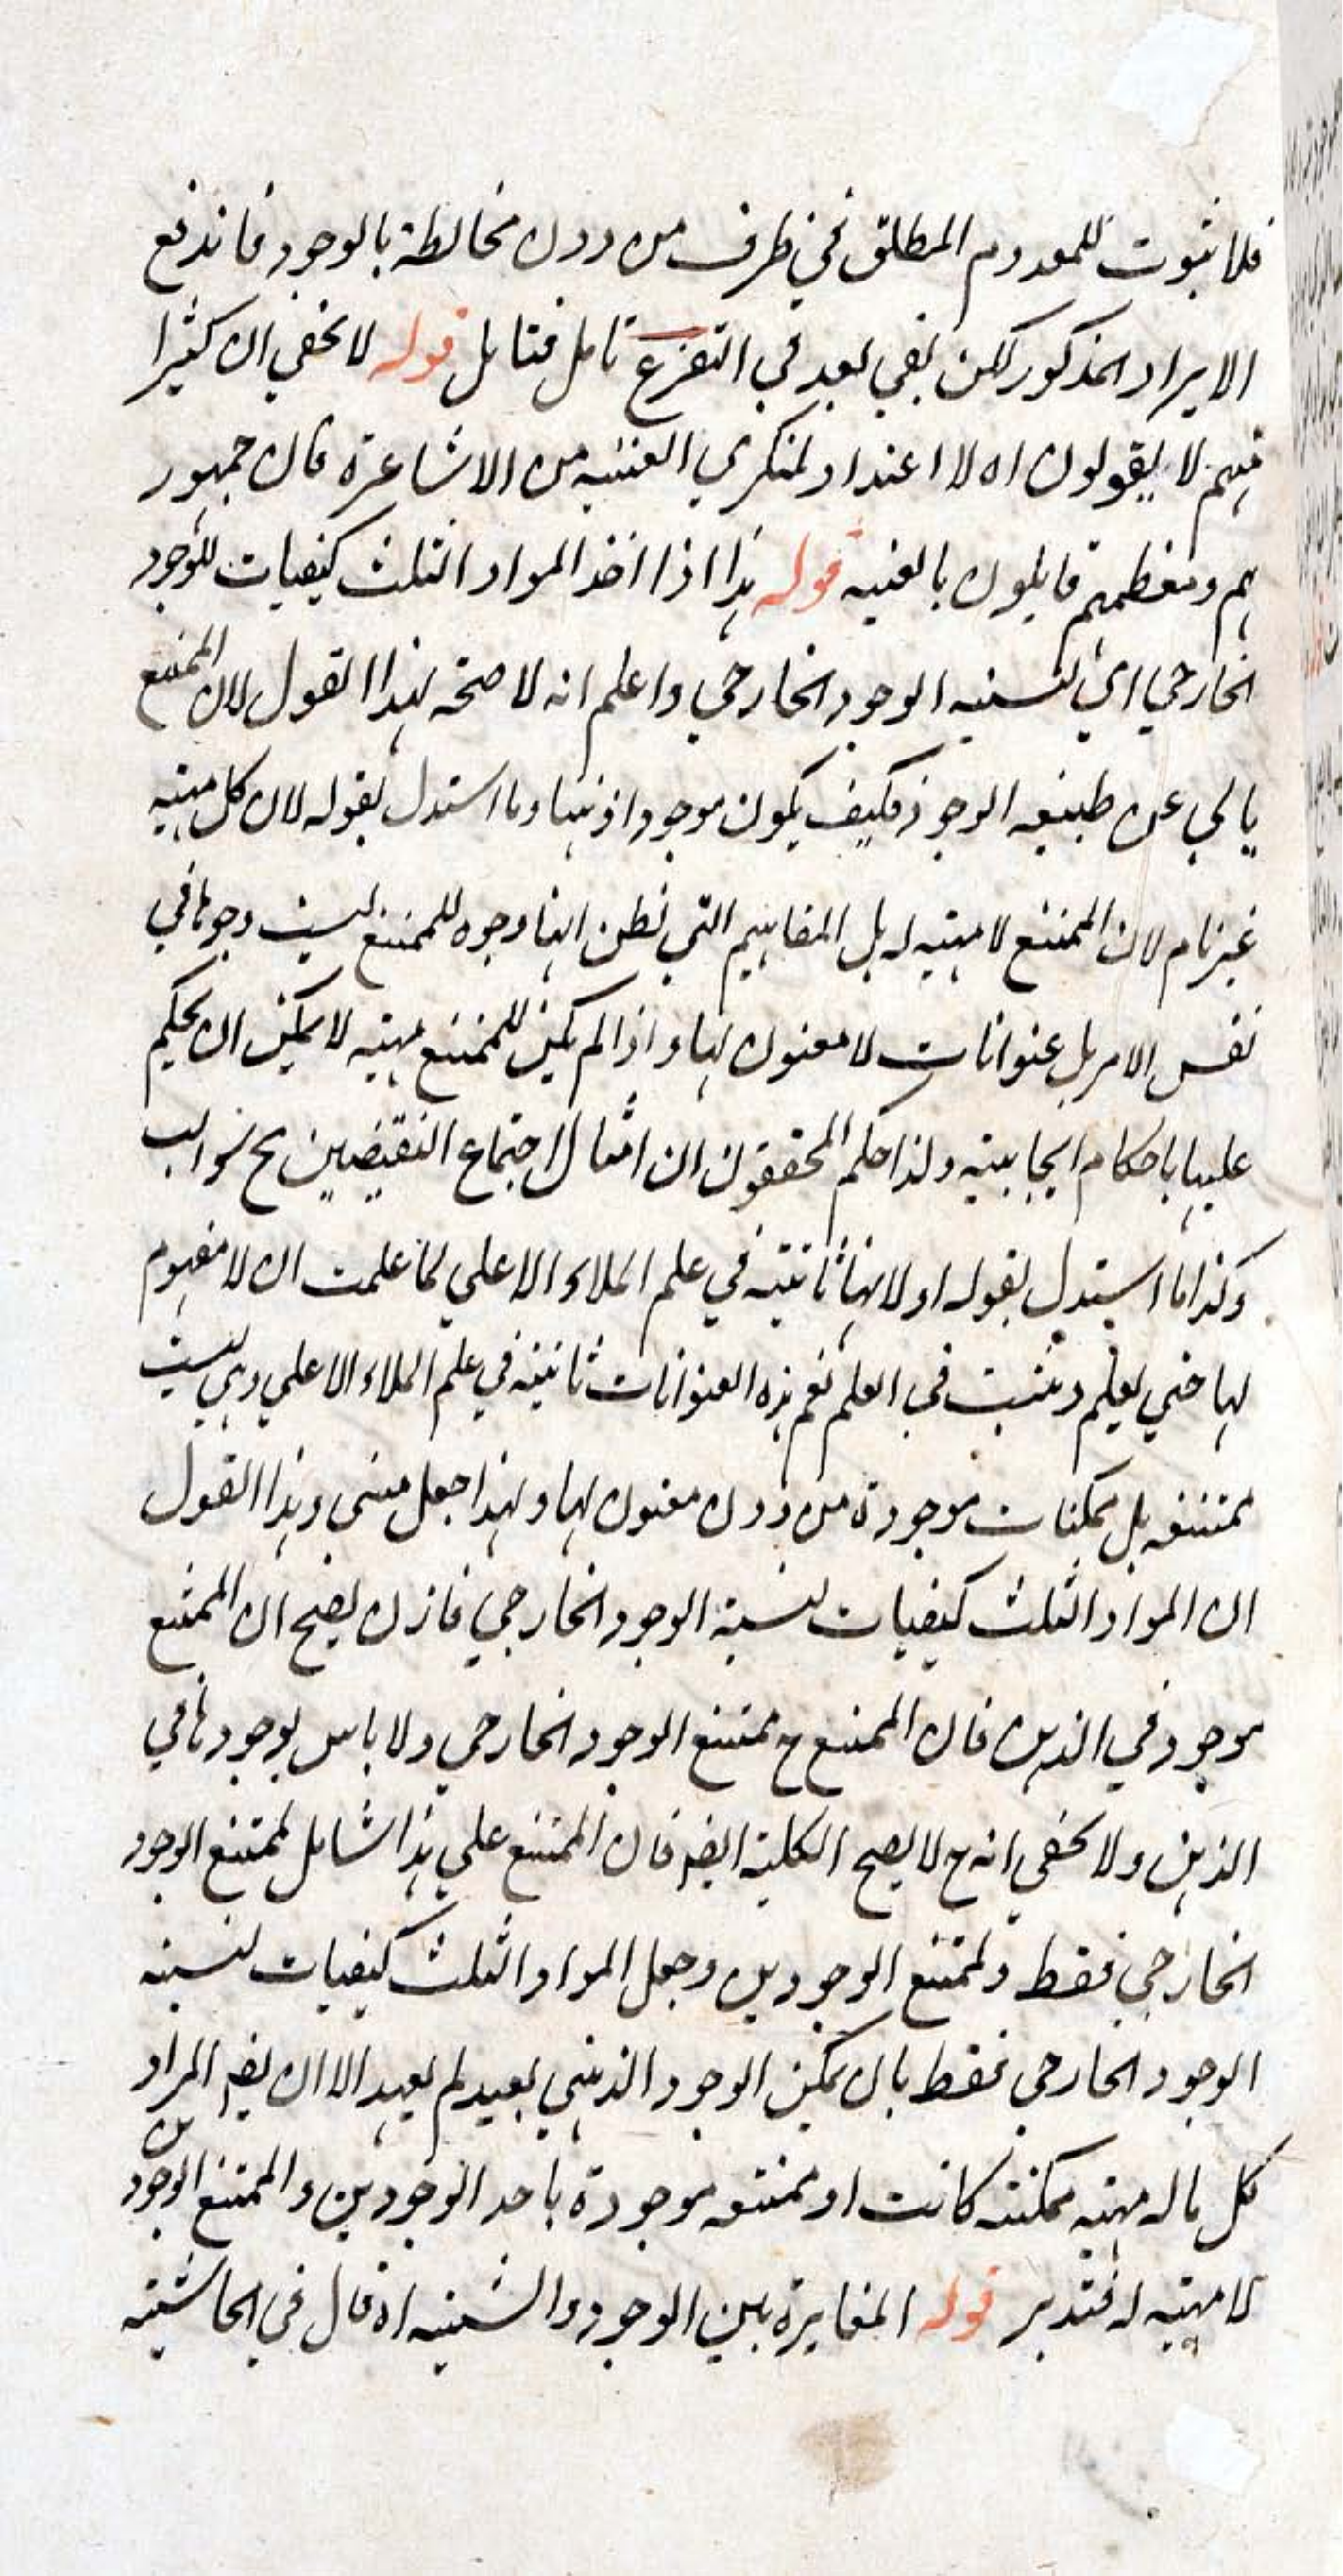 فلا ثبوت للمعدوم المطلق في ظرف من دون مخالطة بالوجود فاندفع
الايراد المذكور لكن بقي بعد في التفرع تامل فتامل قوله لا يخفي ان كثيرا
منهم لا يقولون اه لا اعتداد لمنكري العينيه من الاشاعرة فان جمهور
هم ومعظمهم قايلون بالعينيه قوله هذا اذا اخذ المواد الثلث كيفيات للوجود
الخارجي اي لنسبه الوجود الخارجي واعلم انه لا صحة لهذا القول لان الممتنع
يابي عن طبيعه الوجود فكيف يكون موجودا ذهنا وما استدل بقوله لان كل مهيه
غير تام لان الممتنع لا مهيه له بل المفاهيم التي نظن انها وجوه للممتنع ليست وجوها في
نفس الامر بل عنوانات لا معنون لها واذا لم يكن للممتنع مهيه لا يمكن ان يحكم
عليها باحكام ايجابيه ولذا حكم المحققون ان امثال اجتماع النقيضين مح سوالب
وكذا ما استدل بقوله او لانها ثابتيه في علم الملاء الاعلي لما علمت ان لا مفهوم
لها حتي يعلم ويثبت في العلم نعم هذه العنوانات ثابتيه في علم الملاء الاعلي وهي ليست
ممتنعه بل ممكنات موجودة من دون معنون لها ولهذا جعل مبني وهذا القول
ان المواد الثلث كيفيات لنسبة الوجود الخارجي فاذن يصح ان الممتنع
موجود في الذهن فان الممتنع ح ممتنع الوجود الخارجي ولا باس بوجودها في
الذهن ولا يخفي انه ح لا يصح الكلية ايضا فان الممتنع علي هذا شامل لممتنع الوجود
الخارجي فقط ولممتنع الوجودين وجعل المواد الثلث كيفيات لنسبه
الوجود الخارجي فقط بان يمكن الوجود الذهني بعيد لم يعهد الا ان يقـ المراد
كل ما له مهيه ممكنه كانت او ممتنعه موجودة باحد الوجودين والممتنع الوجودين
لا مهيه له فتدبر قوله المغايرة بين الوجود والشيئيه اه قال في الحاشيه